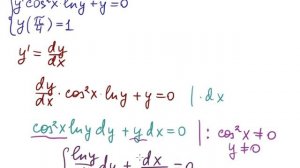 y'cos²x·lny+y=0
y(π/4)=1
y' = dy/dx
dy/dx · cos²x · lny + y = 0 | · dx
cos²x · lny dy + y dx = 0 | : cos²x ≠ 0
y ≠ 0
∫ lny dy + dx = 0